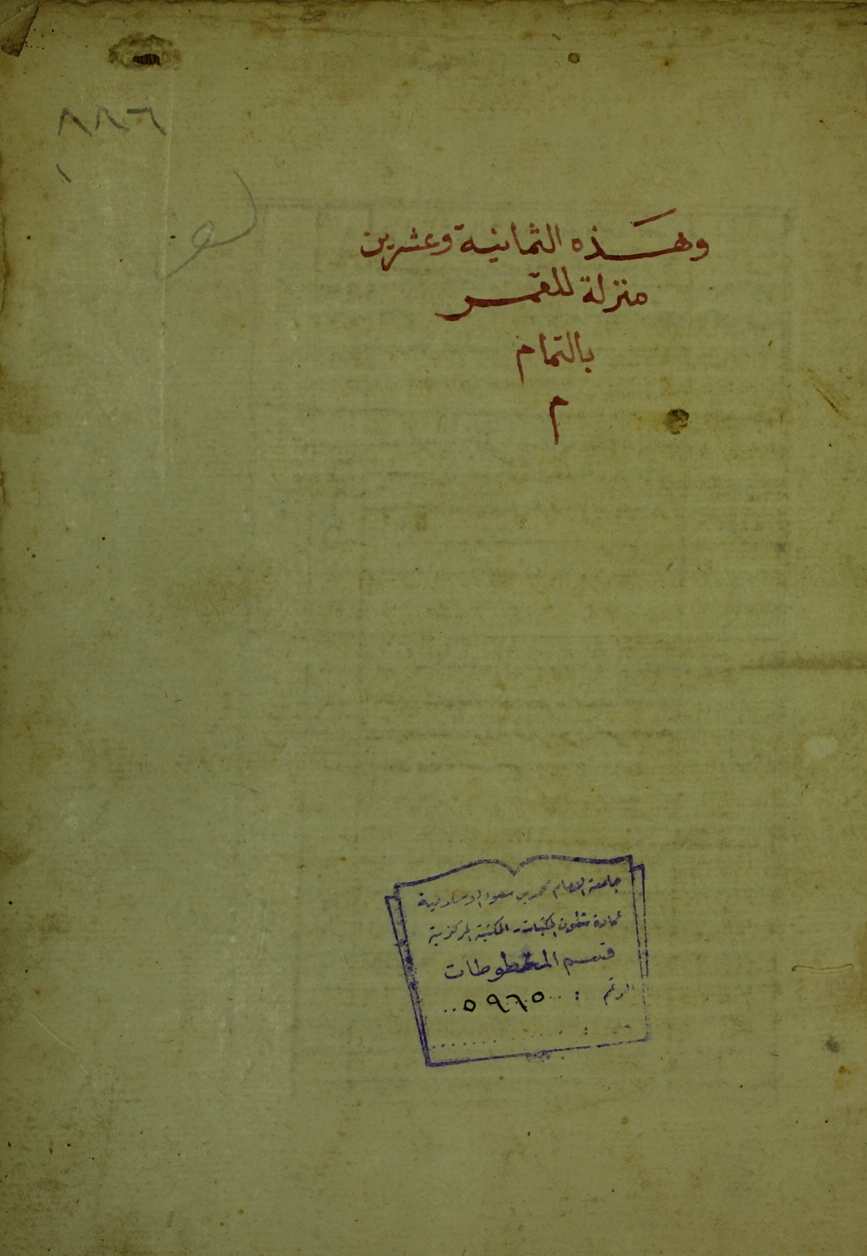 ٨٨٦
١
وهذه الثمانية وعشرين
منزلة للقمر
بالتمام
م
جامعة الإمام محمد بن سعود الإسلامية
عمادة شئون المكتبات - المكتبة المركزية
قسم المخطوطات
الرقم : ٥٩٦٥